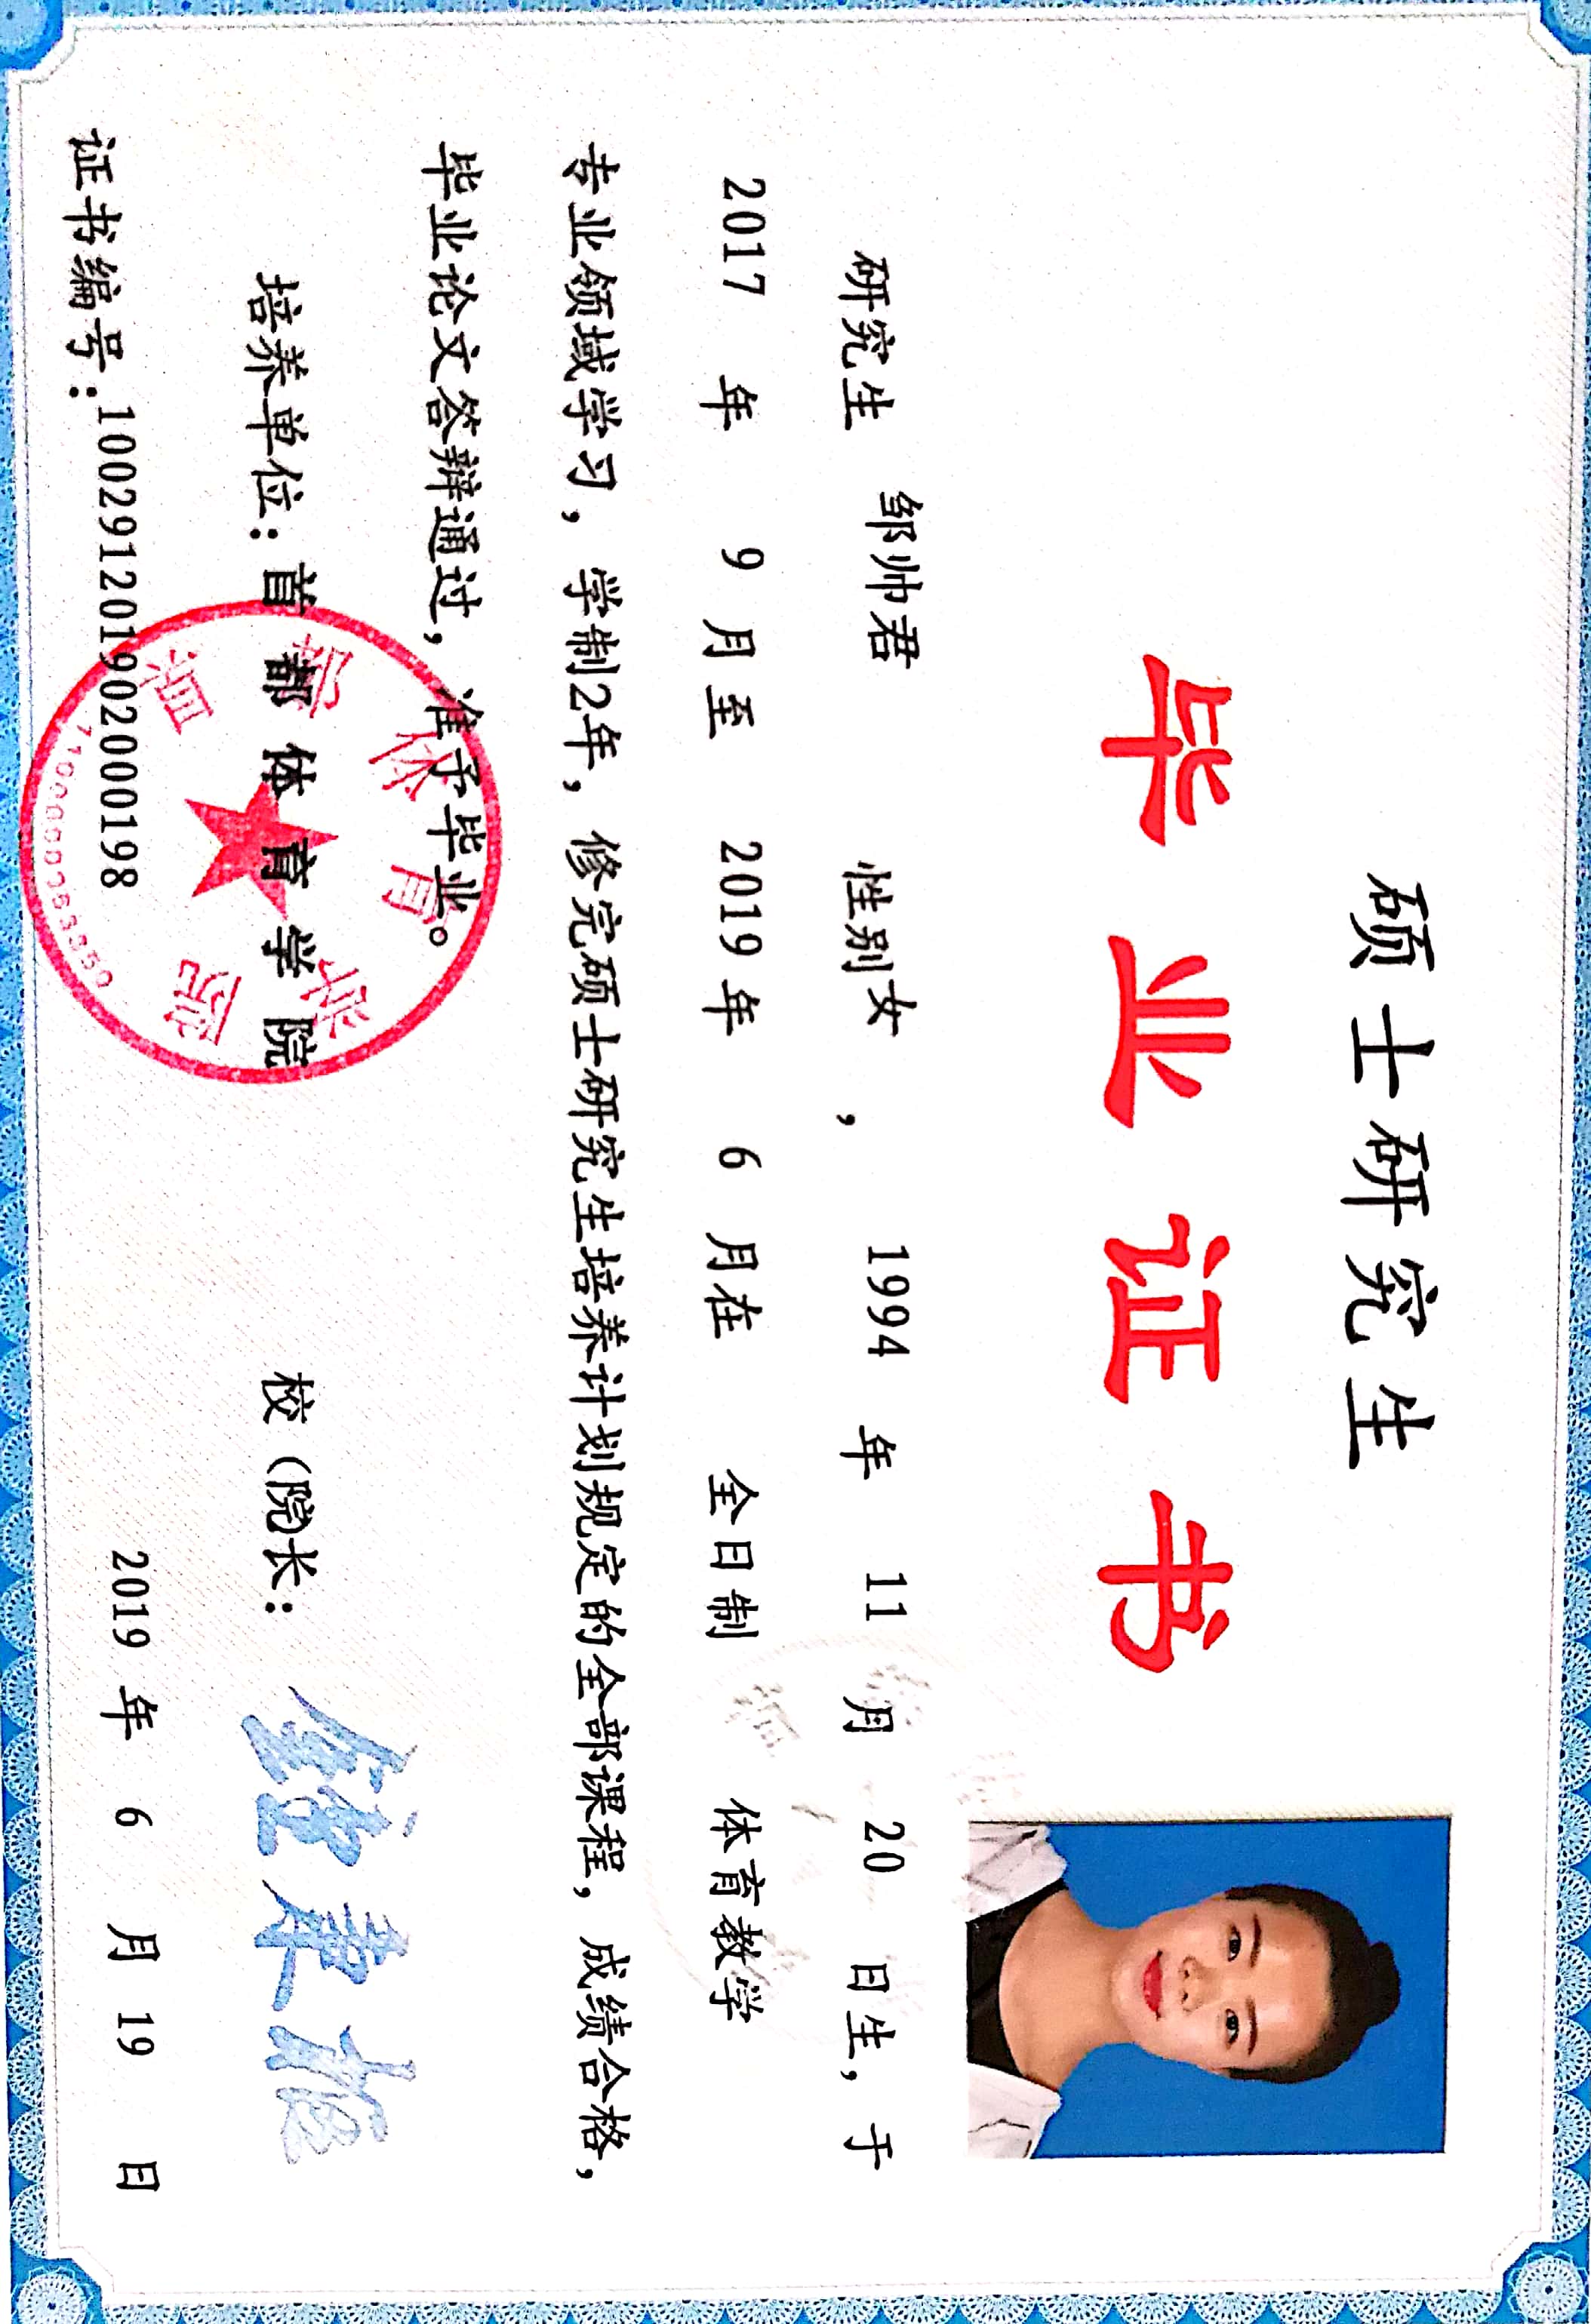 硕士研究生
毕业证书
研究生 邹帅君 性别女 ， 1994 年 11 月 20 日生，于
2017 年 9 月至 2019 年 6 月在 全日制 体育教学
专业领域学习，学制2年，修完硕士研究生培养计划规定的全部课程，成绩合格，
毕业论文答辩通过，准予毕业。
培养单位：首都体育学院 校（院）长：
证书编号：100291201902000198 2019 年 6 月 19 日
首都体育学院